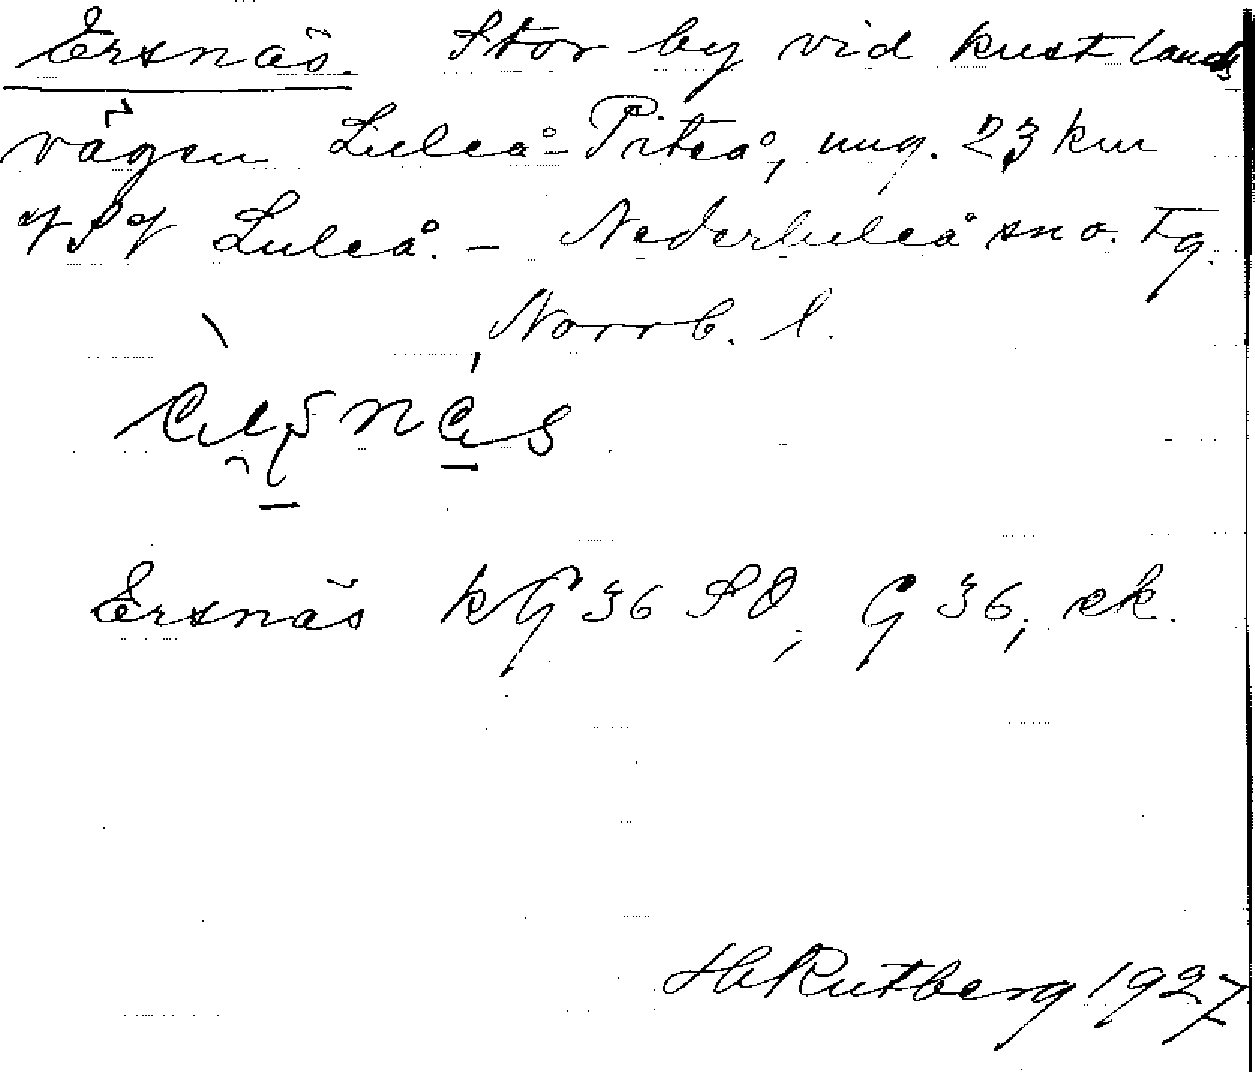 Ersnäs. Stor by vid kustlands
vägen Luleå-Piteå, ung. 23 km
Luleå. – Nederluleå sn o. tg.
Norrb. l.
Ersnäs kG 36 SO, G 36, ek.
H Rutberg 1927